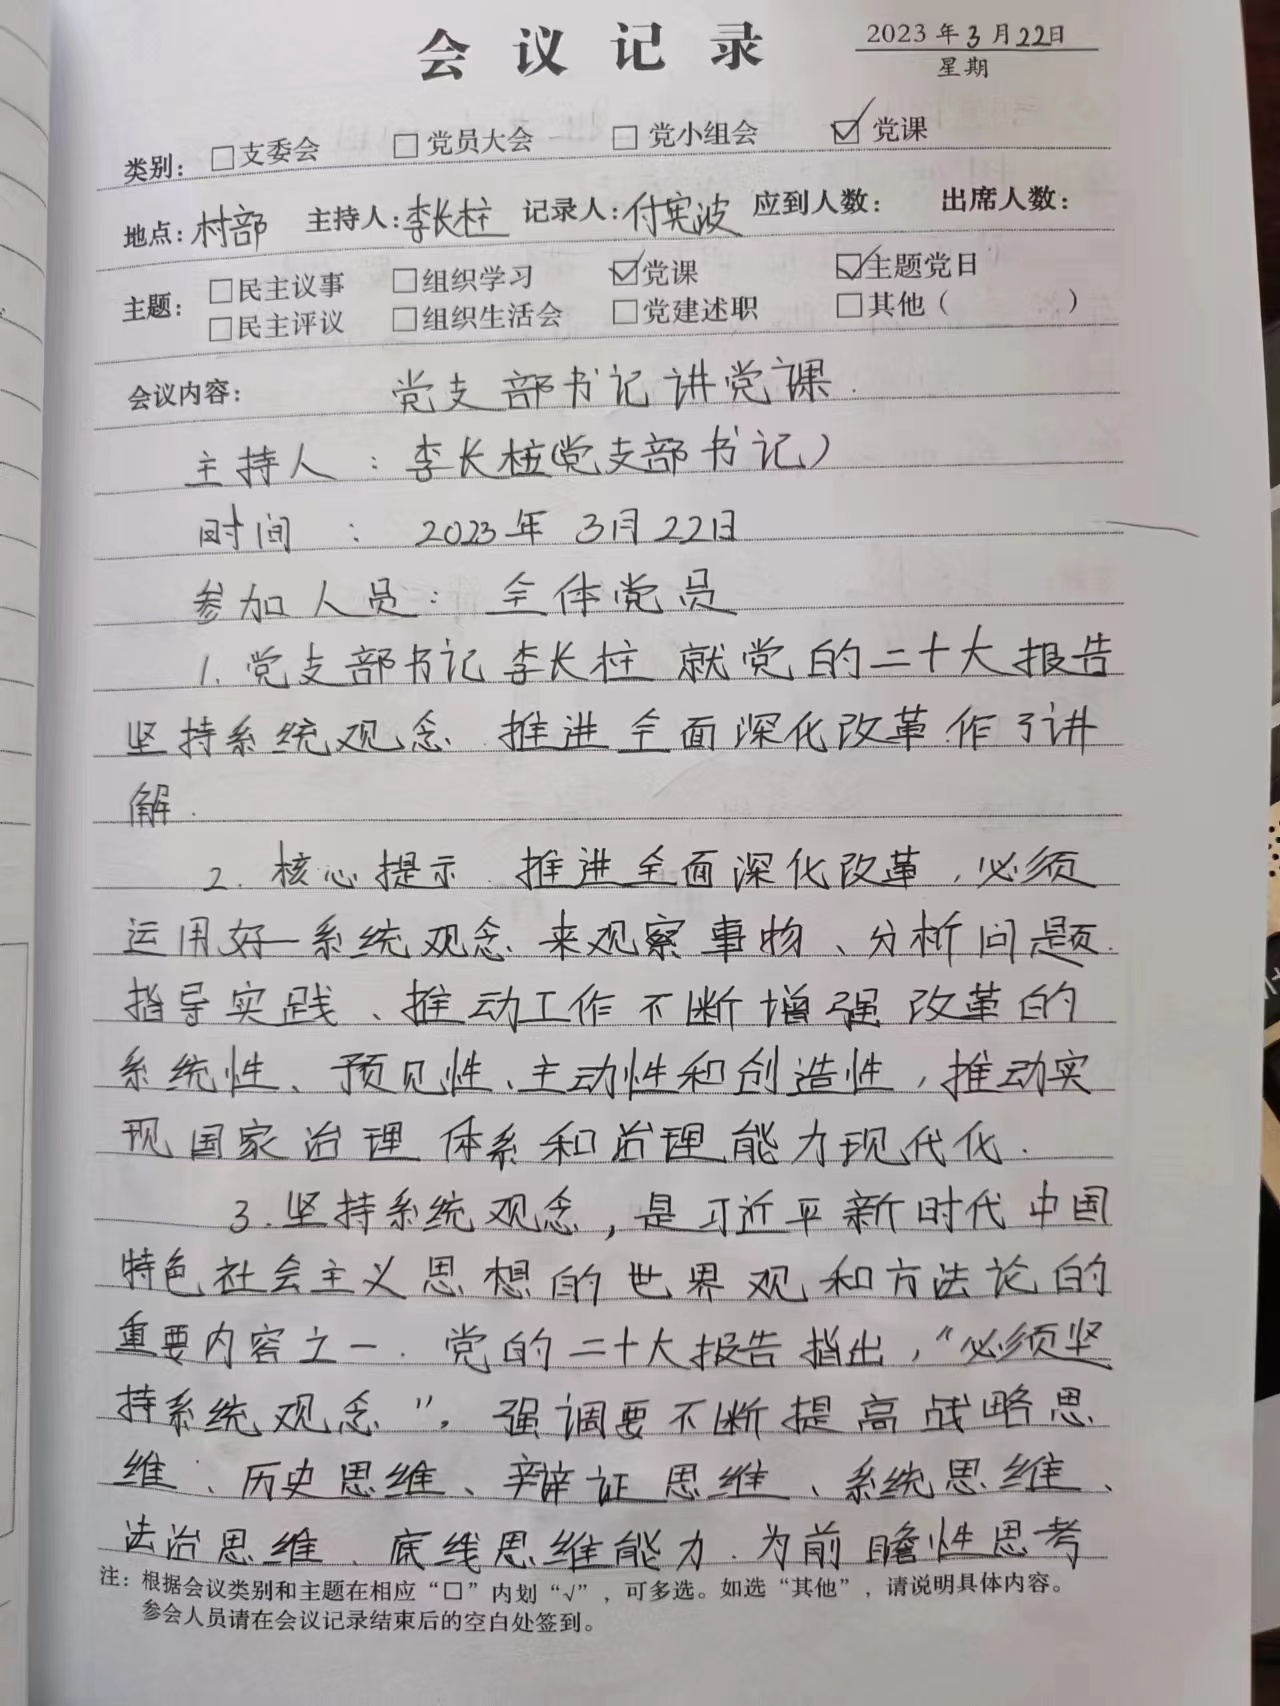 会议记录
2023 年 3 月 22日
星期
类别: □支委会 □党员大会 □党小组会 ☑党课
地点: 村部 主持人: 李长柱 记录人: 付宪波 应到人数: 出席人数:
主题: □民主议事 □组织学习 ☑党课 ☑主题党日
□民主评议 □组织生活会 □党建述职 □其他( )
会议内容: 党支部书记讲党课.
主持人:李长柱(党支部书记)
时间 : 2023年 3月22日
参加人员: 全体党员
1. 党支部书记李长柱 就党的二十大报告
坚持系统观念.推进全面深化改革.作了讲
解.
2. 核心提示.推进全面深化改革,必须
运用好一系统观念.来观察事物、分析问题.
指导实践、推动工作不断增强改革的
系统性、预见性、主动性和创造性,推动实
现国家治理体系和治理能力现代化.
3.坚持系统观念,是习近平新时代中国
特色社会主义思想的世界观和方法论的
重要内容之一.党的二十大报告指出,“必须坚
持系统观念”,强调要不断提高战略思
维、历史思维、辩证思维、系统思维、
法治思维、底线思维能力.为前瞻性思考
注: 根据会议类别和主题在相应“□”内划“√”,可多选。如选“其他”,请说明具体内容。
参会人员请在会议记录结束后的空白处签到。